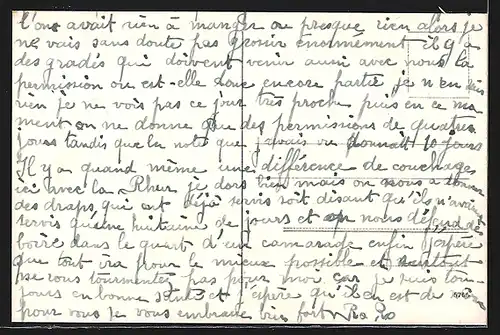 l'on avait rien à manger ou presque rien alors je
ne vais sans doute pas grossir énormément il y a
des gradés qui doivent venir aussi avec nous la
permission ou est-elle donc encore partie je n'en sais
rien je ne vois pas ce jour très proche puis en ce mo
ment on ne donne que des permissions de quatre
jours tandis que la note que j'avais vu donnait 10 jours
Il y a quand même une différence de couchage
ici avec la je dors bien mais on nous a donné
des draps qui ont déjà servis soit disant qu'ils n'avaient
servis qu'une huitaine de jours et on nous défend de
boire dans le quart d'un camarade enfin j'espère
que tout ira pour le mieux possible et surtout
ne vous tourmentez pas pour moi car je suis tou-
jours en bonne santé et j'espère qu'il en est de même
pour vous je vous embrasse bien fort